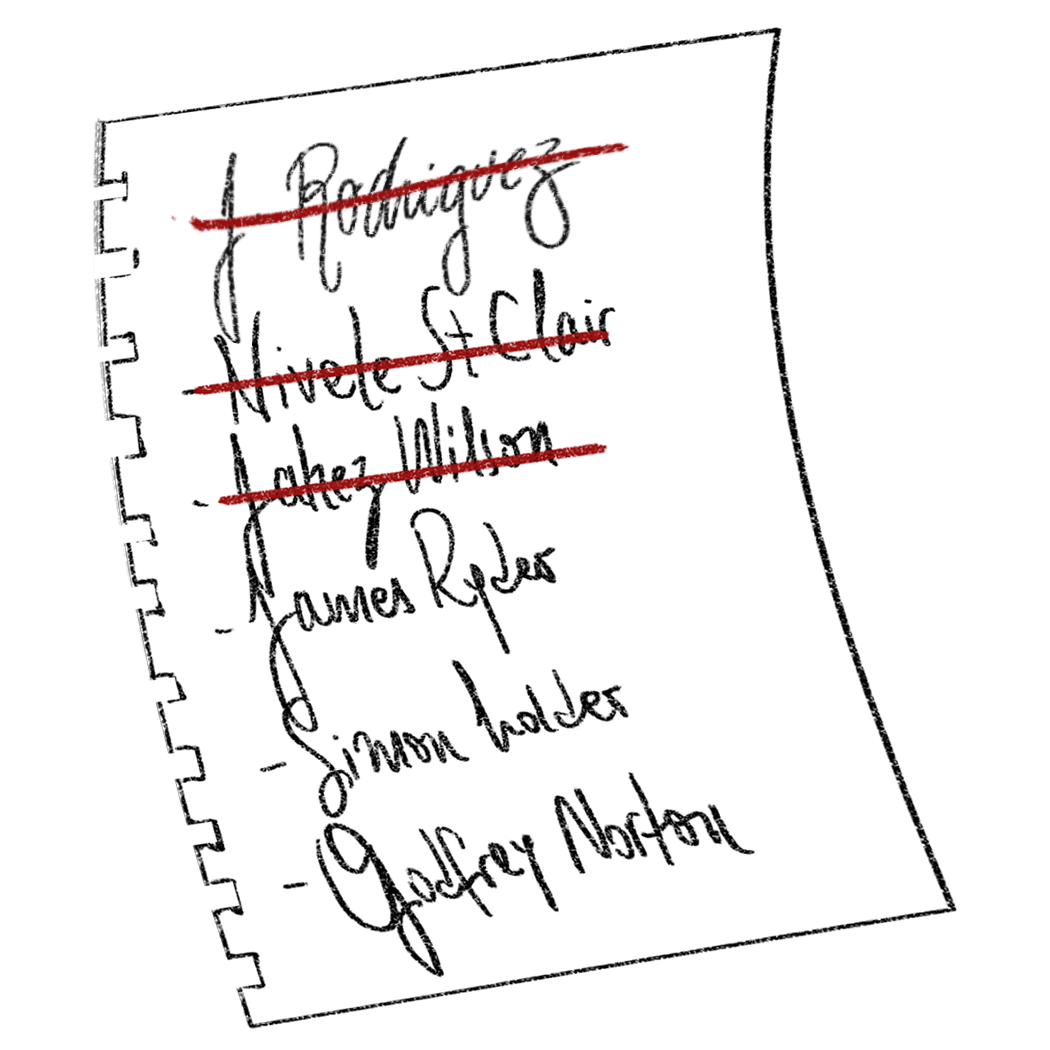 J Rodriguez
Nivele St Clair
- Jahez Wilson
- James Ryder
- Simon holder
- Godfrey Norton